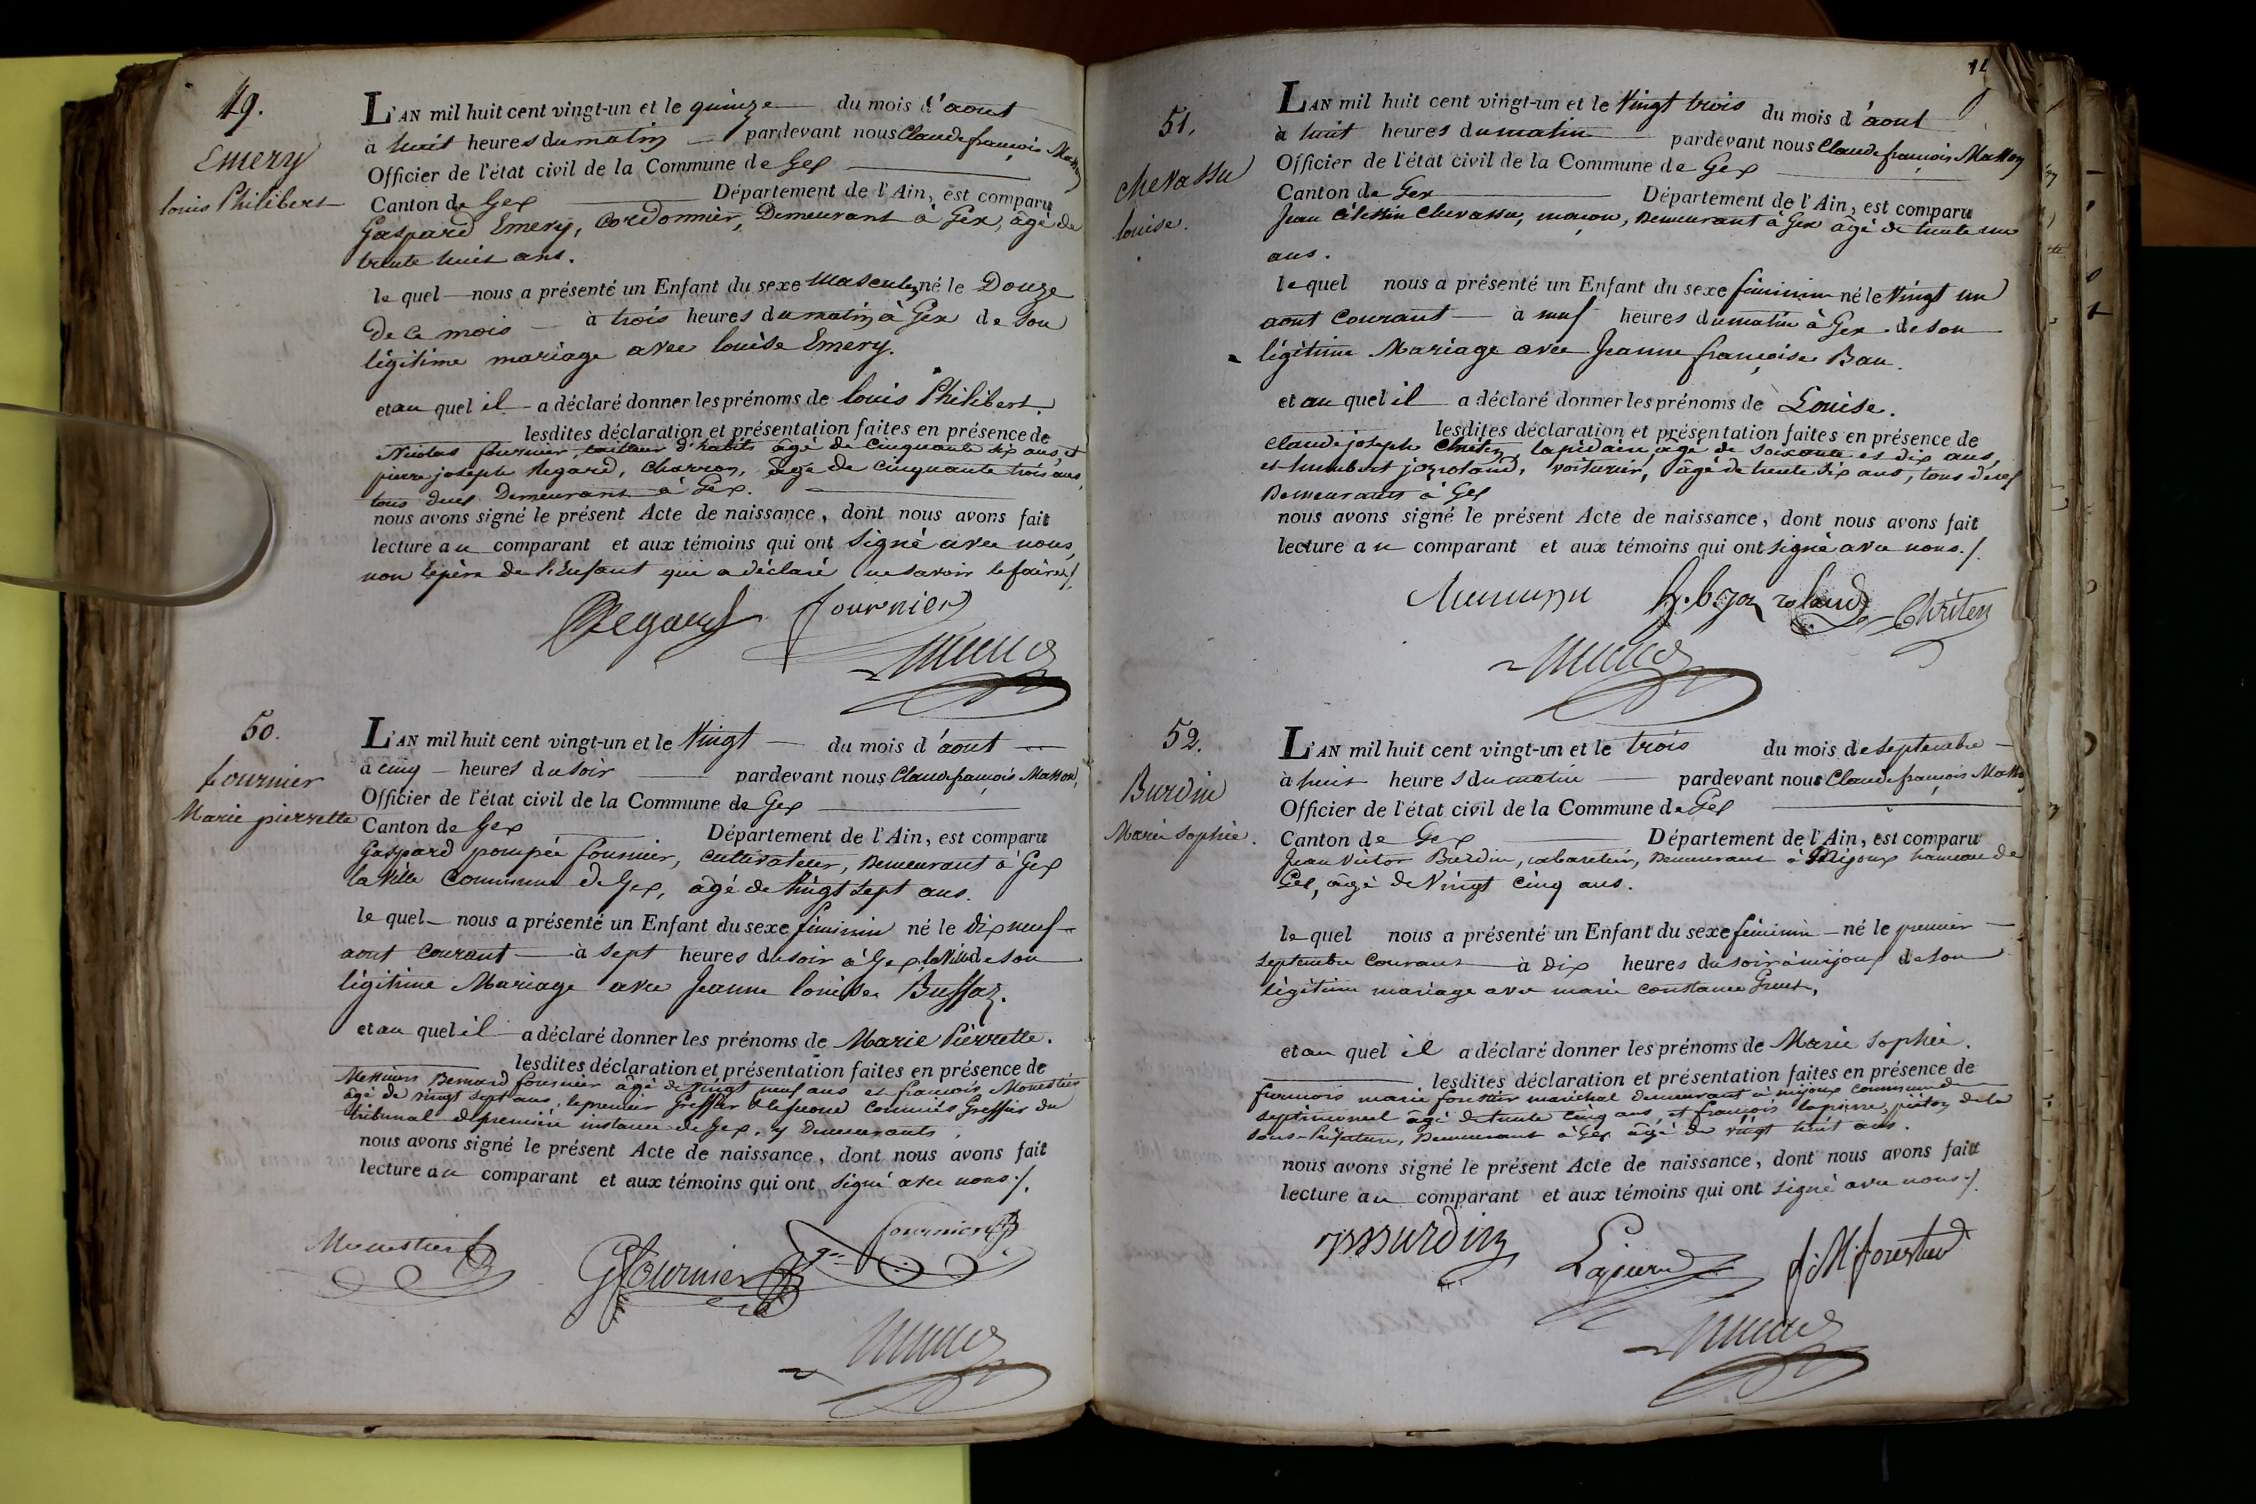 49.
Emery
louis Philibert
L'AN mil huit cent vingt-un et le quinze du mois d'aout
à huit heures du matin pardevant nous Claude françois Masson
Officier de l'état civil de la Commune de Gex
Canton de Gex Département de l'Ain, est comparu
Gaspard Emery, Cordonnier, Demeurant à Gex, âgé de
trente huit ans.
le quel nous a présenté un Enfant du sexe Masculin né le Douze
de ce mois à trois heures du matin à Gex de son
légitime mariage avec louise Emery.
et au quel il a déclaré donner les prénoms de louis Philibert.
lesdites déclaration et présentation faites en présence de
Nicolas fournier, tailleur d'habits âgé de cinquante dix ans, et
pierre joseph Regard, Charron, âgé de cinquante trois ans,
tous deux Demeurant à Gex.
nous avons signé le présent Acte de naissance, dont nous avons fait
lecture au comparant et aux témoins qui ont signé avec nous,
non le père de l'Enfant qui a déclaré ne savoir le faire ./.
Regard fournier
50.
fournier
Marie pierrette
L'AN mil huit cent vingt-un et le Vingt du mois d'aout
à cinq heures du soir pardevant nous Claude françois Masson,
Officier de l'état civil de la Commune de Gex
Canton de Gex Département de l'Ain, est comparu
Gaspard pompée fournier, cultivateur, Demeurant à Gex
la Ville Commune de Gex, âgé de Vingt sept ans.
le quel nous a présenté un Enfant du sexe féminin né le dix neuf
aout courant à sept heures du soir à Gex la Ville de son
légitime Mariage avec Jeanne louise Buffaz.
et au quel il a déclaré donner les prénoms de Marie Pierrette.
lesdites déclaration et présentation faites en présence de
Messieurs Bernard fournier âgé de Vingt neuf ans et françois Monestier
âgé de vingt sept ans, le premier Greffier & le second Commis Greffier du
tribunal de première instance de Gex, y Demeurants.
nous avons signé le présent Acte de naissance, dont nous avons fait
lecture au comparant et aux témoins qui ont signé avec nous ./.
Monestier GFournier fournier
51.
Chevassu
louise.
L'AN mil huit cent vingt-un et le Vingt trois du mois d'aout
à huit heures du matin pardevant nous Claude françois Masson
Officier de l'état civil de la Commune de Gex
Canton de Gex Département de l'Ain, est comparu
Jean Célestin Chevassu, maçon, Demeurant à Gex âgé de trente un
ans.
le quel nous a présenté un Enfant du sexe féminin né le Vingt un
aout courant à neuf heures du matin à Gex de son
légitime Mariage avec Jeanne françoise Bau.
et au quel il a déclaré donner les prénoms de Louise.
lesdites déclaration et présentation faites en présence de
Claude joseph Chriten, lapidaire, âgé de soixante et dix ans,
et humbert jozroland, voiturier, âgé de trente six ans, tous deux
Demeurants à Gex
nous avons signé le présent Acte de naissance, dont nous avons fait
lecture au comparant et aux témoins qui ont signé avec nous ./.
h.b. joz roland Chriten
52.
Burdin
Marie sophie.
L'AN mil huit cent vingt-un et le trois du mois de septembre
à huit heures du matin pardevant nous Claude françois Masson
Officier de l'état civil de la Commune de Gex
Canton de Gex Département de l'Ain, est comparu
Jean Victor Burdin, cabaretier, Demeurant à Mijoux hameau de
Gex, âgé de Vingt cinq ans.
le quel nous a présenté un Enfant du sexe féminin né le premier
septembre courant à Dix heures du soir à mijoux de son
légitime mariage avec marie constance Gruet,
et au quel il a déclaré donner les prénoms de Marie sophie.
lesdites déclaration et présentation faites en présence de
françois marie forestier maréchal demeurant à mijoux commune de
septmoncel âgé de trente cinq ans, et françois lapierre, piéton de la
sous-Préfecture, Demeurant à Gex âgé de vingt huit ans.
nous avons signé le présent Acte de naissance, dont nous avons fait
lecture au comparant et aux témoins qui ont signé avec nous ./.
Burdin Lapierre f.M.forestier